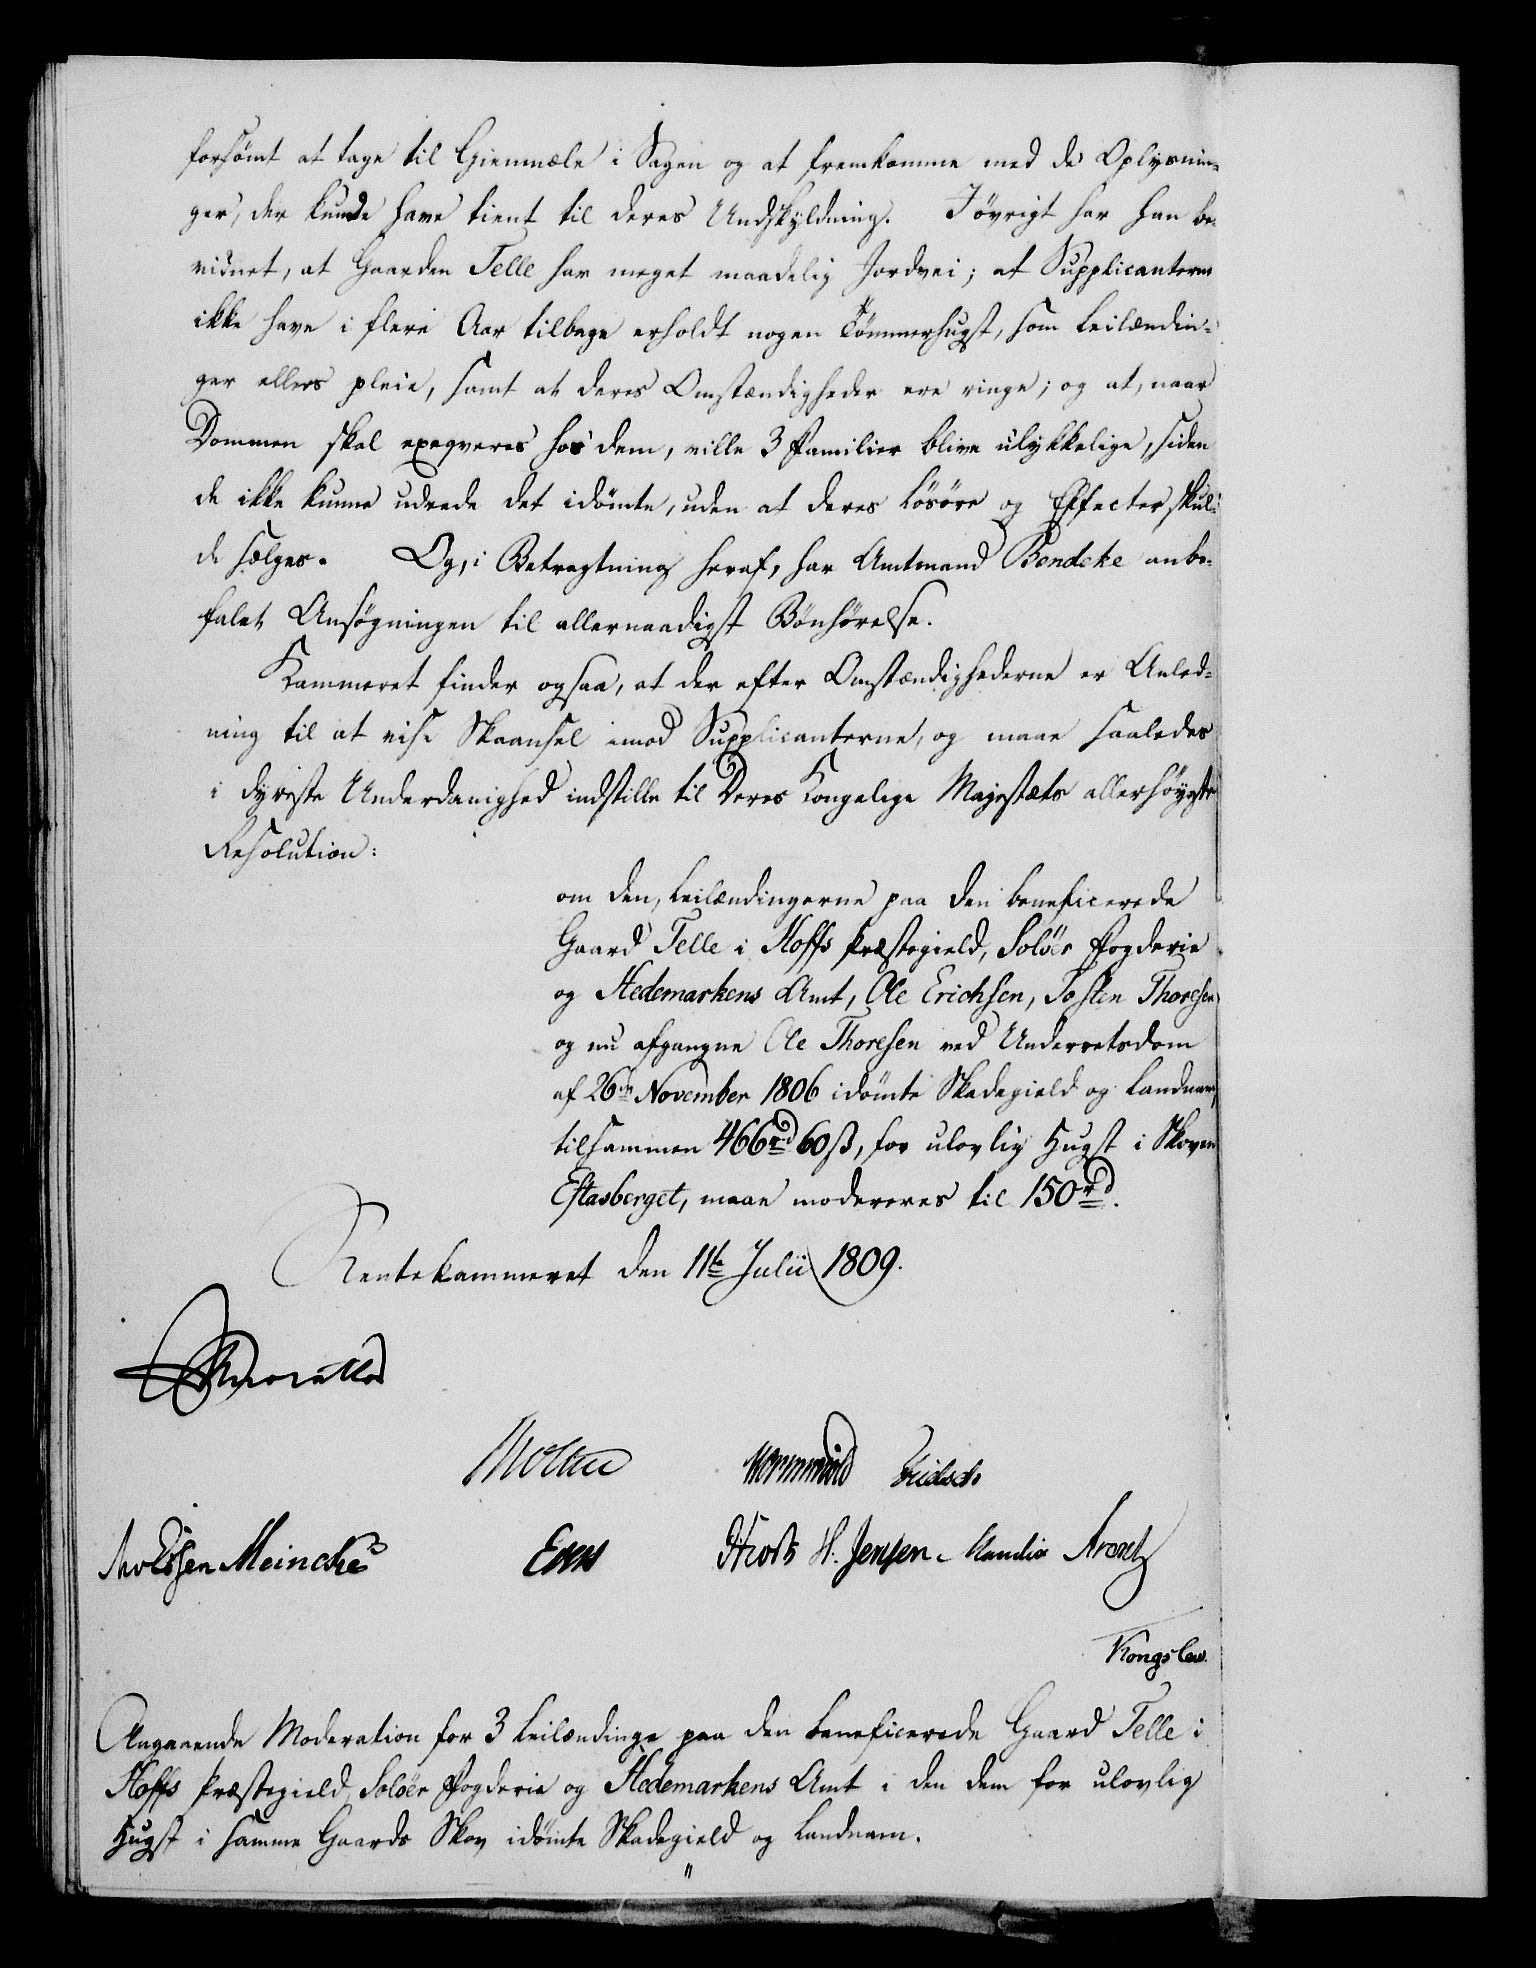 forsømt at tage til Giennæle i Sagen og at fremkomme med de Oplysnin-
ger, der kunde have tient til deres Undskyldning. Iøvrigt har han be-
vidnet, at Gaarden Telle har meget maadelig Jordvei; at Supplicanterne
ikke have i flere Aar tilbage erholdt nogen Tømmerhugst, som Leilændin-
ger ellers pleie, samt at deres Omstændigheder ere ringe; og at, naar
Dommen skal exeqveres hos dem, ville 3 Familier blive ulykkelige, siden
de ikke kunne udrede det idømte, uden at deres Løsøre og Effecter skul-
de sælges. Og, i Betragtning heraf, har Amtmand Bendeke anbe-
falet Ansøgningen til allernaadigst Bønhørelse.
Kammeret finder ogsaa, at der efter Omstændighederne er Anled-
ning til at vise Skaansel imod Supplicanterne, og maae saaledes
i dybeste Underdanighed indstille til Deres Kongelige Majestæts allerhøyeste
Resolution:
om den, Leilændingerne paa den beneficerede
Gaard Telle i Hoffs Præstegield, Soløer Fogderie
og Hedemarkens Amt, Ole Erichsen, Josten Thoresen
og nu afgangne Ole Thoresen ved Underretsdom
af 26de November 1806 idømte Skadegield og Landnam,
tilsammen 466rd 60ß, for ulovlig Hugst i Skoven
Eftasberget, maae modereres til 150rd.
Rentekammeret den 11te Julii 1809.
Moltke Wormskiold
Meincke Hiorth H. Jensen
Kongslew.
Angaaende Moderation for 3 Leilændinge paa den beneficerede Gaard Telle i
Hoffs Præstegield, Soløer Fogderie og Hedemarkens Amt i den dem for ulovlig
Hugst i samme Gaards Skov idømte Skadegield og Landnam.